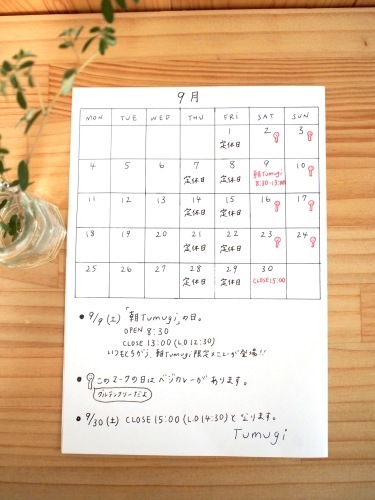 9月
MON TUE WED THU FRI SAT SUN
1 2 3
定休日
4 5 6 7 8 9 10
定休日 定休日 朝Tumugi
8:30-13:00
11 12 13 14 15 16 17
定休日 定休日
18 19 20 21 22 23 24
定休日 定休日
25 26 27 28 29 30
定休日 定休日 CLOSE15:00
● 9/9(土)「朝Tumugi」の日。
OPEN 8:30
CLOSE 13:00 (L.O 12:30)
いつもとちがう、朝Tumugi限定メニューが登場!!
● このマークの日はベジカレーがあります。
グルテンフリーだよ
● 9/30(土) CLOSE 15:00 (L.O 14:30)となります。
Tumugi